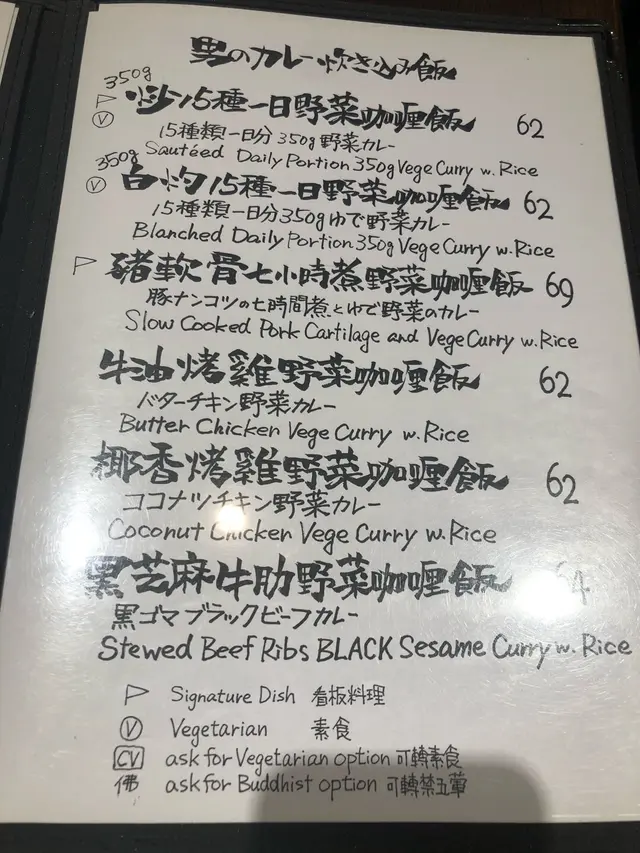 男のカレー炊き込み飯
350g
炒15種一日野菜咖喱飯 62
Ⓥ
15種類一日分350g野菜カレー
Sautéed Daily Portion 350g Vege Curry w. Rice
350g
Ⓥ 白灼15種一日野菜咖喱飯 62
15種類一日分350gゆで野菜カレー
Blanched Daily Portion 350g Vege Curry w. Rice
豬軟骨七小時煮野菜咖喱飯 69
豚ナンコツの七時間煮とゆで野菜のカレー
Slow Cooked Pork Cartilage and Vege Curry w. Rice
牛油烤雞野菜咖喱飯 62
バターチキン野菜カレー
Butter Chicken Vege Curry w. Rice
椰香烤雞野菜咖喱飯 62
ココナツチキン野菜カレー
Coconut Chicken Vege Curry w. Rice
黑芝麻牛肋野菜咖喱飯
黒ゴマブラックビーフカレー
Stewed Beef Ribs BLACK Sesame Curry w. Rice
Signature Dish 看板料理
Ⓥ Vegetarian 素食
CV ask for Vegetarian option 可轉素食
佛 ask for Buddhist option 可轉禁五葷